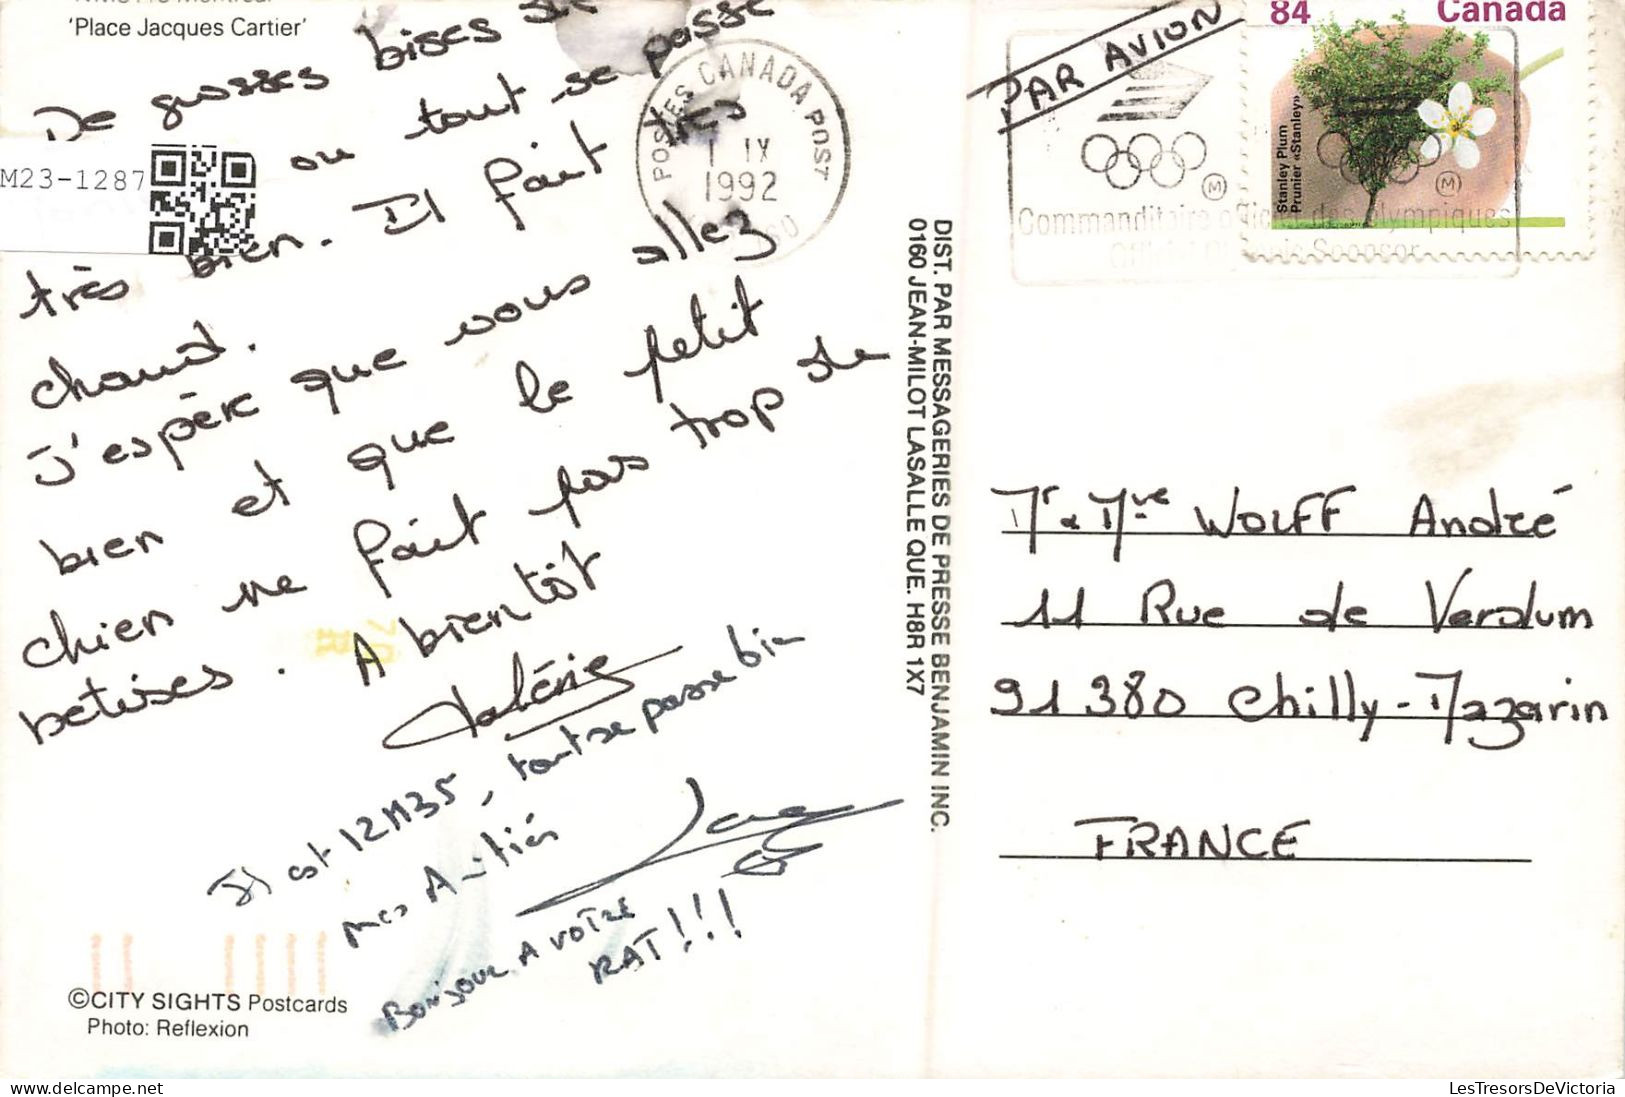 'Place Jacques Cartier'
De grosses bises de
ou tout se passe
très bien. Il fait très
chaud.
J'espère que vous allez
bien et que le petit
chien ne fait pas trop de
betises. A bientôt
Valérie
Il est 12H35, tout se passe bien
mes Amitiés
Bonjour A VOTRE
RAT!!!
©CITY SIGHTS Postcards
Photo: Reflexion
M23-1287
DIST. PAR MESSAGERIES DE PRESSE BENJAMIN INC.
0160 JEAN-MILOT LASALLE QUE. H8R 1X7
POSTES CANADA POST
IX
1992
PAR AVION
Commanditaire officiel des Olympiques
Official Olympic Sponsor
84 Canada
Stanley Plum
Prunier «Stanley»
Mr & Mme WOLFF André
11 Rue de Verdum
91 380 Chilly-Mazarin
FRANCE
LesTresorsDeVictoria
delcampe.net